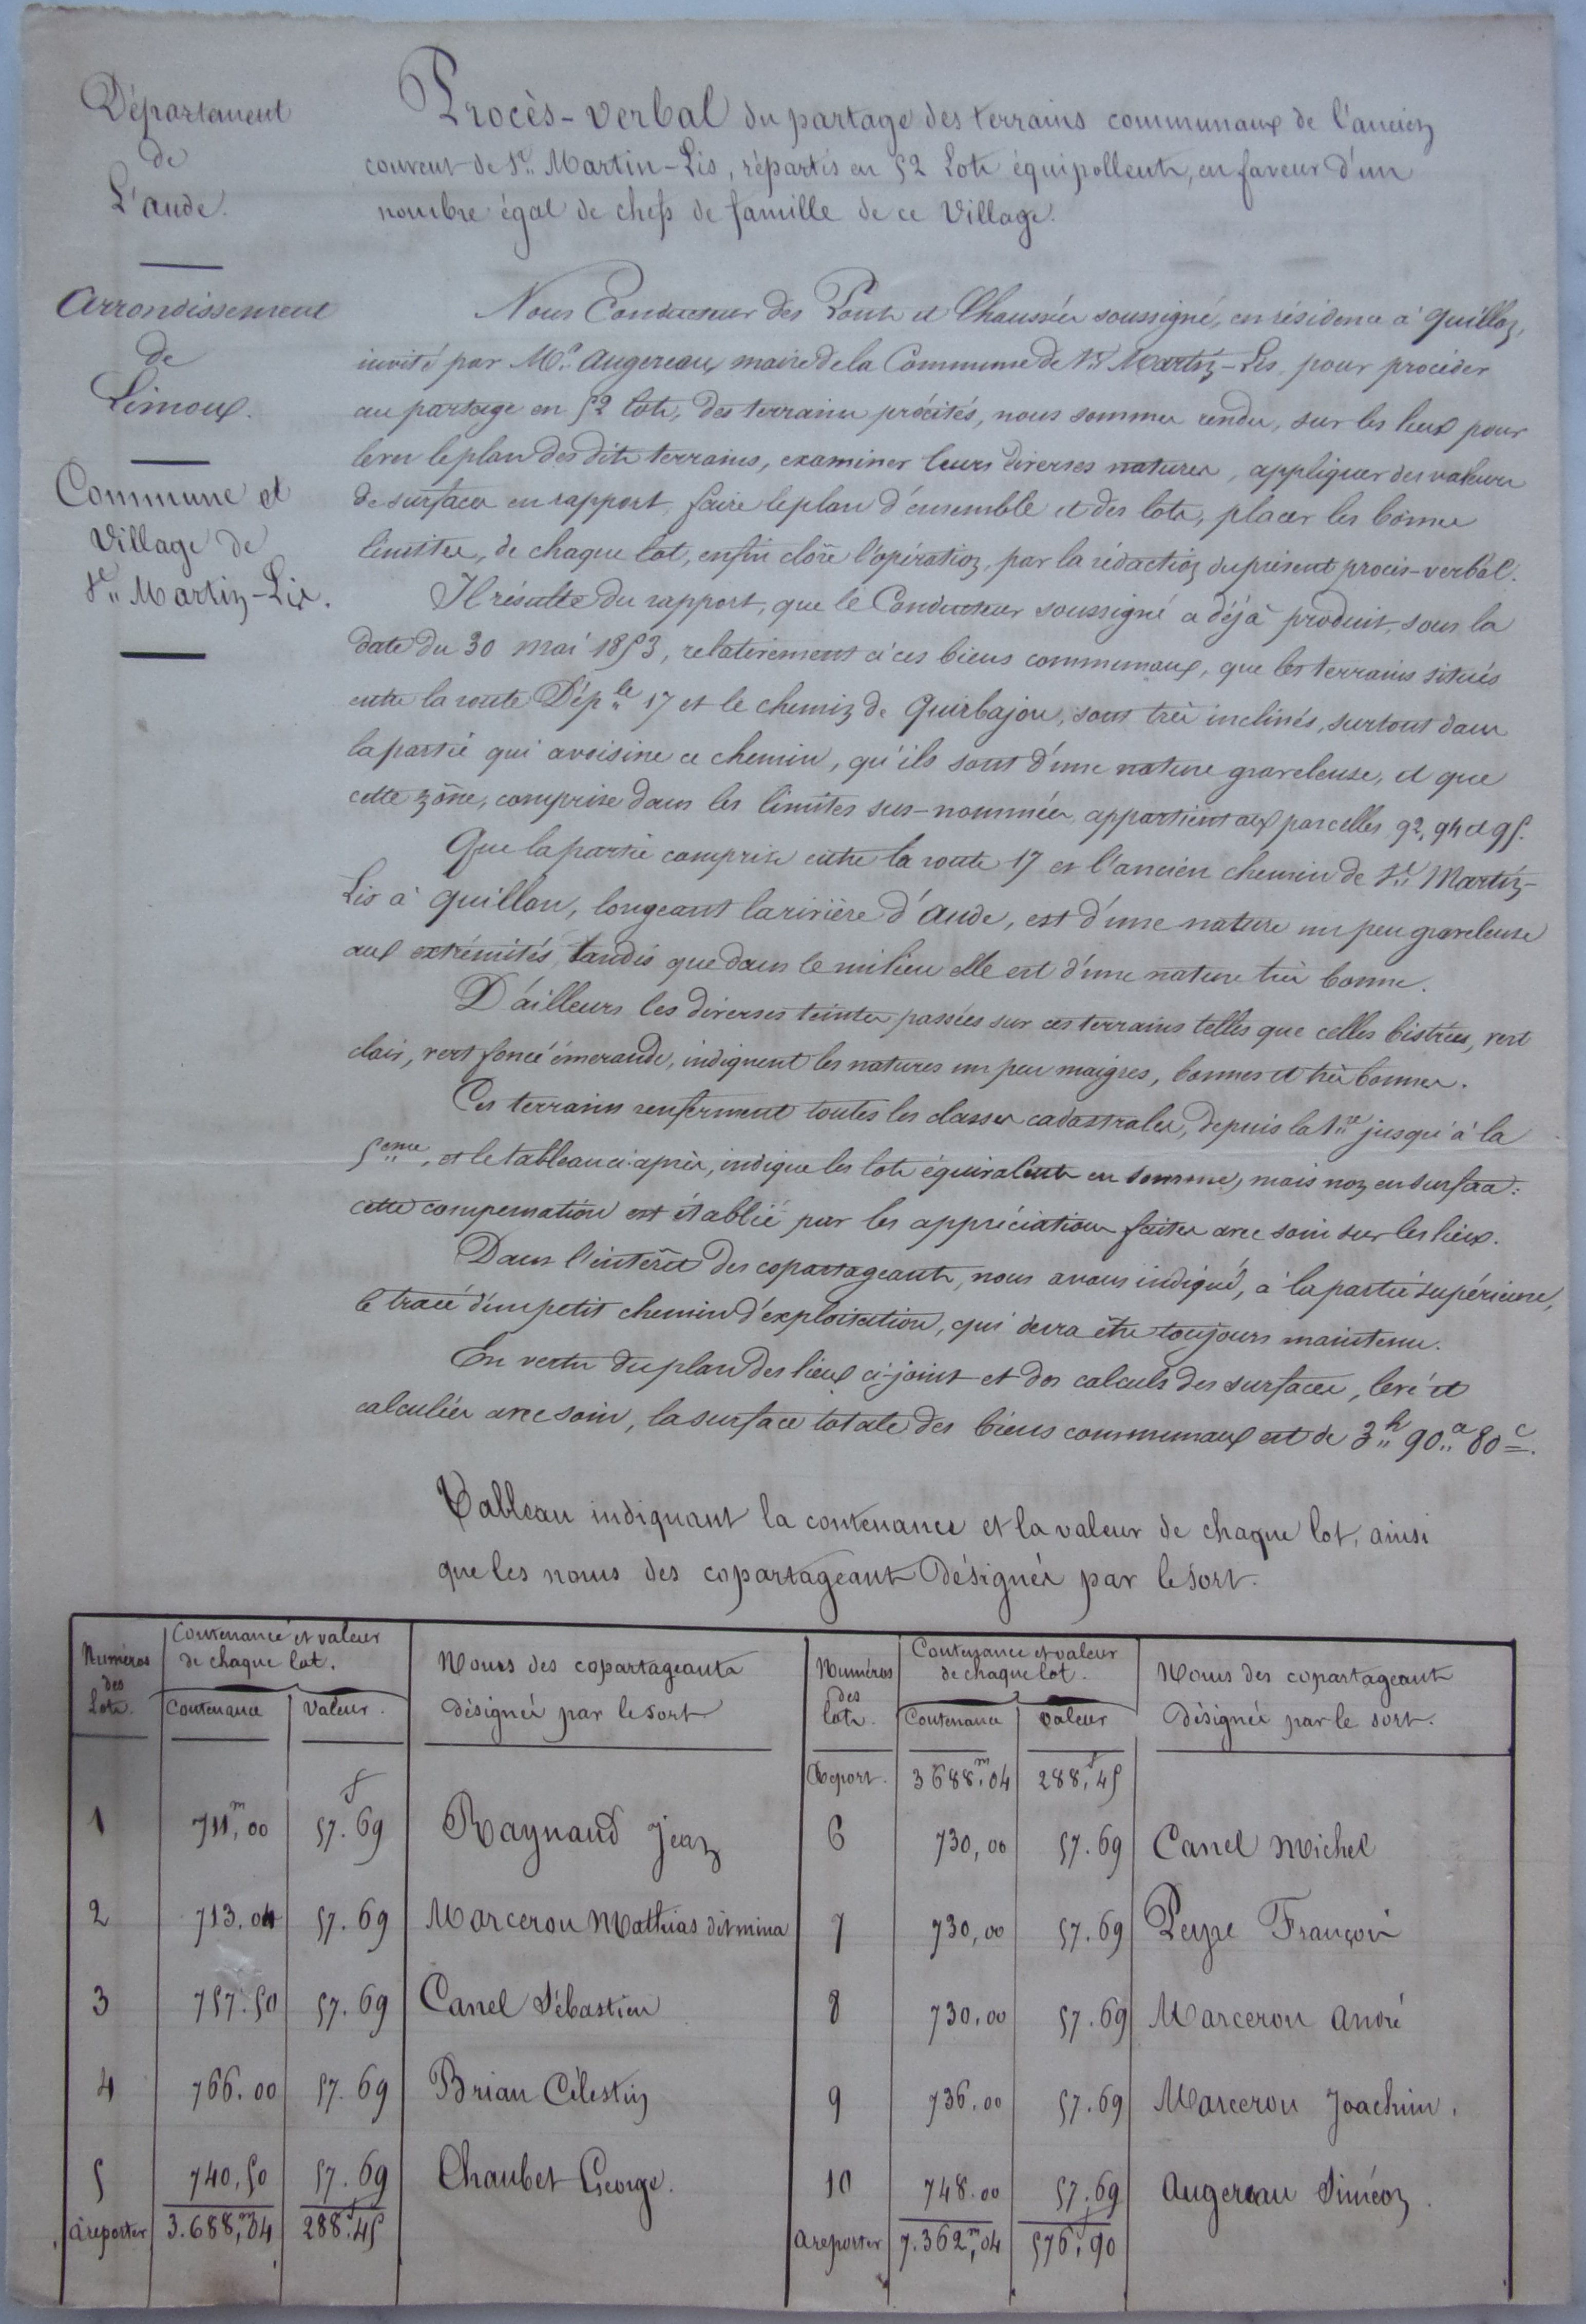 Département
de
L'aude.
Arrondissement
de
Limoux.
Commune et
Village de
St. Martin-Lis.
Procès-verbal du partage des terrains communaux de l'ancien
couvent de St. Martin-Lis, répartis en 52 Lots équipollents, en faveur d'un
nombre égal de chefs de famille de ce Village.
Nous Conducteur des Ponts et Chaussées soussigné, en résidence à Quillan,
invité par Mr. Augereau, maire de la Commune de St. Martin-Lis, pour procéder
au partage en 52 lots, des terrains précités, nous sommes rendu, sur les lieux pour
lever le plan des dits terrains, examiner leurs diverses natures, appliquer des valeurs
de surfaces en rapport, faire le plan d'ensemble et des lots, placer les bornes
limites, de chaque lot, enfin clore l'opération, par la rédaction du présent procès-verbal.
Il résulte du rapport, que le Conducteur soussigné a déjà produit, sous la
date du 30 mai 1853, relativement à ces biens communaux, que les terrains situés
entre la route Dép.le 17 et le chemin de Quirbajou, sont très inclinés, surtout dans
la partie qui avoisine ce chemin, qu'ils sont d'une nature graveleuse, et que
cette zône, comprise dans les limites sus-nommées, appartient aux parcelles 92, 94 et 95.
Que la partie comprise entre la route 17 et l'ancien chemin de St. Martin-
Lis à Quillan, longeant la rivière d'Aude, est d'une nature un peu graveleuse
aux extrémités, tandis que dans le milieu elle est d'une nature très bonne.
D'ailleurs les diverses teintes passées sur ces terrains telles que celles bistrées, vert
clair, vert foncé émeraude, indiquent les natures un peu maigres, bonnes et très bonnes.
Ces terrains renferment toutes les classes cadastrales, depuis la 1re jusqu'à la
5eme, et le tableau ci-après, indique les lots équivalents en somme, mais non en surface:
cette compensation est établie par les appréciations faites avec soin sur les lieux.
Dans l'intérêt des copartageants, nous avons indiqué, à la partie supérieure,
le tracé d'un petit chemin d'exploitation, qui devra être toujours maintenu.
En vertu du plan des lieux ci-joint et des calculs des surfaces, levé et
calculées avec soin, la surface totale des biens communaux est de 3h 90a 80c.
Tableau indiquant la contenance et la valeur de chaque lot, ainsi
que les noms des copartageants désignés par le sort.
Numéros des Lots. Contenance et valeur de chaque lot. Noms des copartageants désignés par le sort. Numéros des lots. Contenance et valeur de chaque lot. Noms des copartageants désignés par le sort.
Contenance Valeur. Contenance Valeur
Report. 3688m,04 288f,45
1 711m,00 57f.69 Raynaud Jean 6 730,00 57.69 Canel Michel
2 713.04 57.69 Marcerou Mathias dit mina 7 730,00 57.69 Peyre François
3 757.50 57.69 Canel Sébastien 8 730.00 57.69 Marcerou André
4 766.00 57.69 Brian Célestin 9 736.00 57.69 Marcerou Joachim.
5 740,50 57.69 Chaubet George. 10 748.00 57.69 Augereau Siméon.
à reporter 3.688m,04 288f.45 à reporter 7.362m,04 576f,90